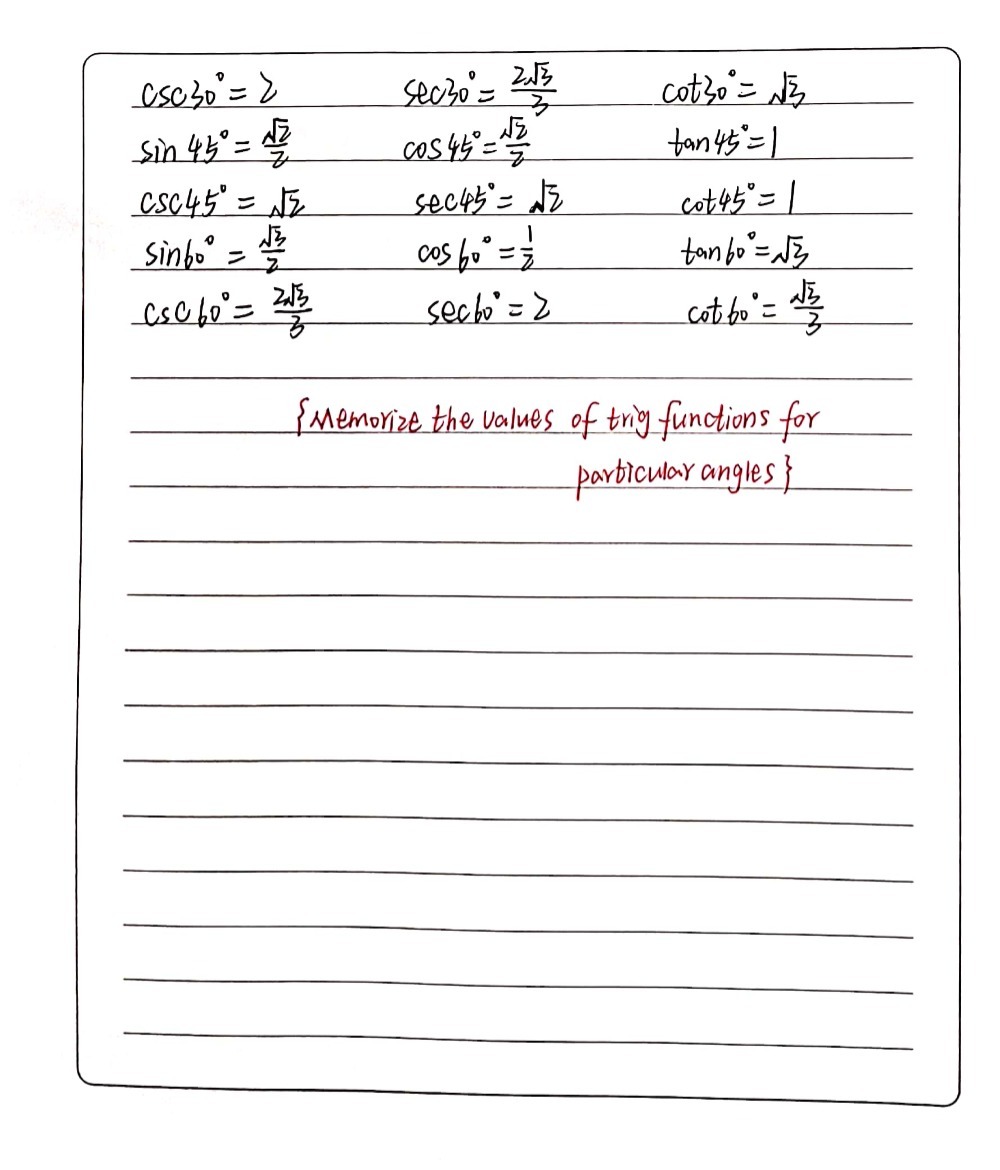 csc30°=2 sec30°=2√3/3 cot30°=√3
sin45°=√2/2 cos45°=√2/2 tan45°=1
csc45°=√2 sec45°=√2 cot45°=1
sin60°=√3/2 cos60°=1/2 tan60°=√3
csc60°=2√3/3 sec60°=2 cot60°=√3/3
{Memorize the values of trig functions for
particular angles}